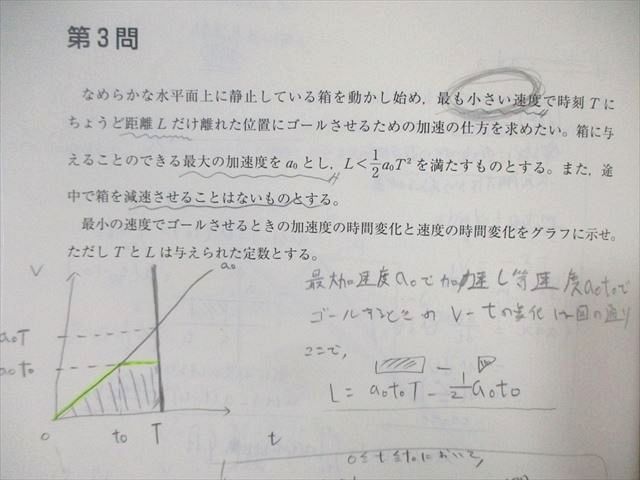 第3問
なめらかな水平面上に静止している箱を動かし始め，最も小さい速度で時刻Tに
ちょうど距離Lだけ離れた位置にゴールさせるための加速の仕方を求めたい。箱に与
えることのできる最大の加速度をa₀とし，L＜1/2a₀T²を満たすものとする。また，途
中で箱を減速させることはないものとする。
最小の速度でゴールさせるときの加速度の時間変化と速度の時間変化をグラフに示せ。
ただしTとLは与えられた定数とする。
V
a₀
a₀T
a₀t₀
0
t₀
T
t
最大加速度a₀で加速し等速度a₀t₀で
ゴールするときのV-tの変化は図の通り
ここで，
−
L = a₀t₀T − 1/2 a₀t₀
0≦t≦t₀において，